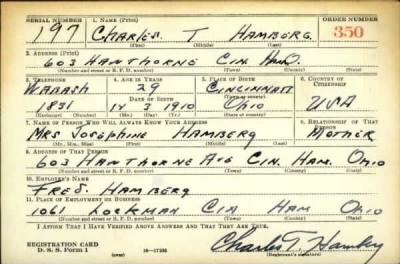 SERIAL NUMBER 1. NAME (Print) ORDER NUMBER
197 CHARLES T HAMBERG. 350
(First) (Middle) (Last)
2. ADDRESS (Print)
603 HAWTHORNE CIN. HAM O.
(Number and street or R. F. D. number) (Town) (County) (State)
3. TELEPHONE 4. AGE IN YEARS 5. PLACE OF BIRTH 6. COUNTRY OF CITIZENSHIP
WABASH 29 CINCINNATI
1831 DATE OF BIRTH OHIO USA
12 3 1910
(Exchange) (Number) (Mo.) (Day) (Yr.) (State or country)
7. NAME OF PERSON WHO WILL ALWAYS KNOW YOUR ADDRESS 8. RELATIONSHIP OF THAT PERSON
MRS JOSEPHINE HAMBERG MOTHER
(Mr., Mrs., Miss) (First) (Middle) (Last)
9. ADDRESS OF THAT PERSON
603 HAWTHORNE AVE CIN. HAM. OHIO
(Number and street or R. F. D. number) (Town) (County) (State)
10. EMPLOYER'S NAME
FRED. HAMBERG
11. PLACE OF EMPLOYMENT OR BUSINESS
1061 CIN HAM OHIO
(Number and street or R. F. D. number) (Town) (County) (State)
I AFFIRM THAT I HAVE VERIFIED ABOVE ANSWERS AND THAT THEY ARE TRUE.
REGISTRATION CARD
D. S. S. Form 1 16—17105 Charles T. Hamberg
(Registrant's signature)